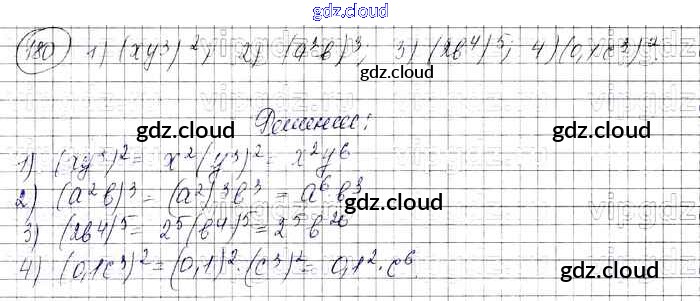 gdz.cloud
180 1) (xy³)²; 2) (a²b)³; 3) (2b⁴)⁵; 4) (0,1c³)²
gdz.cloud
Решение:
gdz.cloud gdz.cloud
1) (xy³)² = x²(y³)² = x²y⁶
2) (a²b)³ = (a²)³b³ = a⁶b³
gdz.cloud
3) (2b⁴)⁵ = 2⁵(b⁴)⁵ = 2⁵b²⁰
4) (0,1c³)² = (0,1)²·(c³)² = 0,1²·c⁶
gdz.cloud gdz.cloud